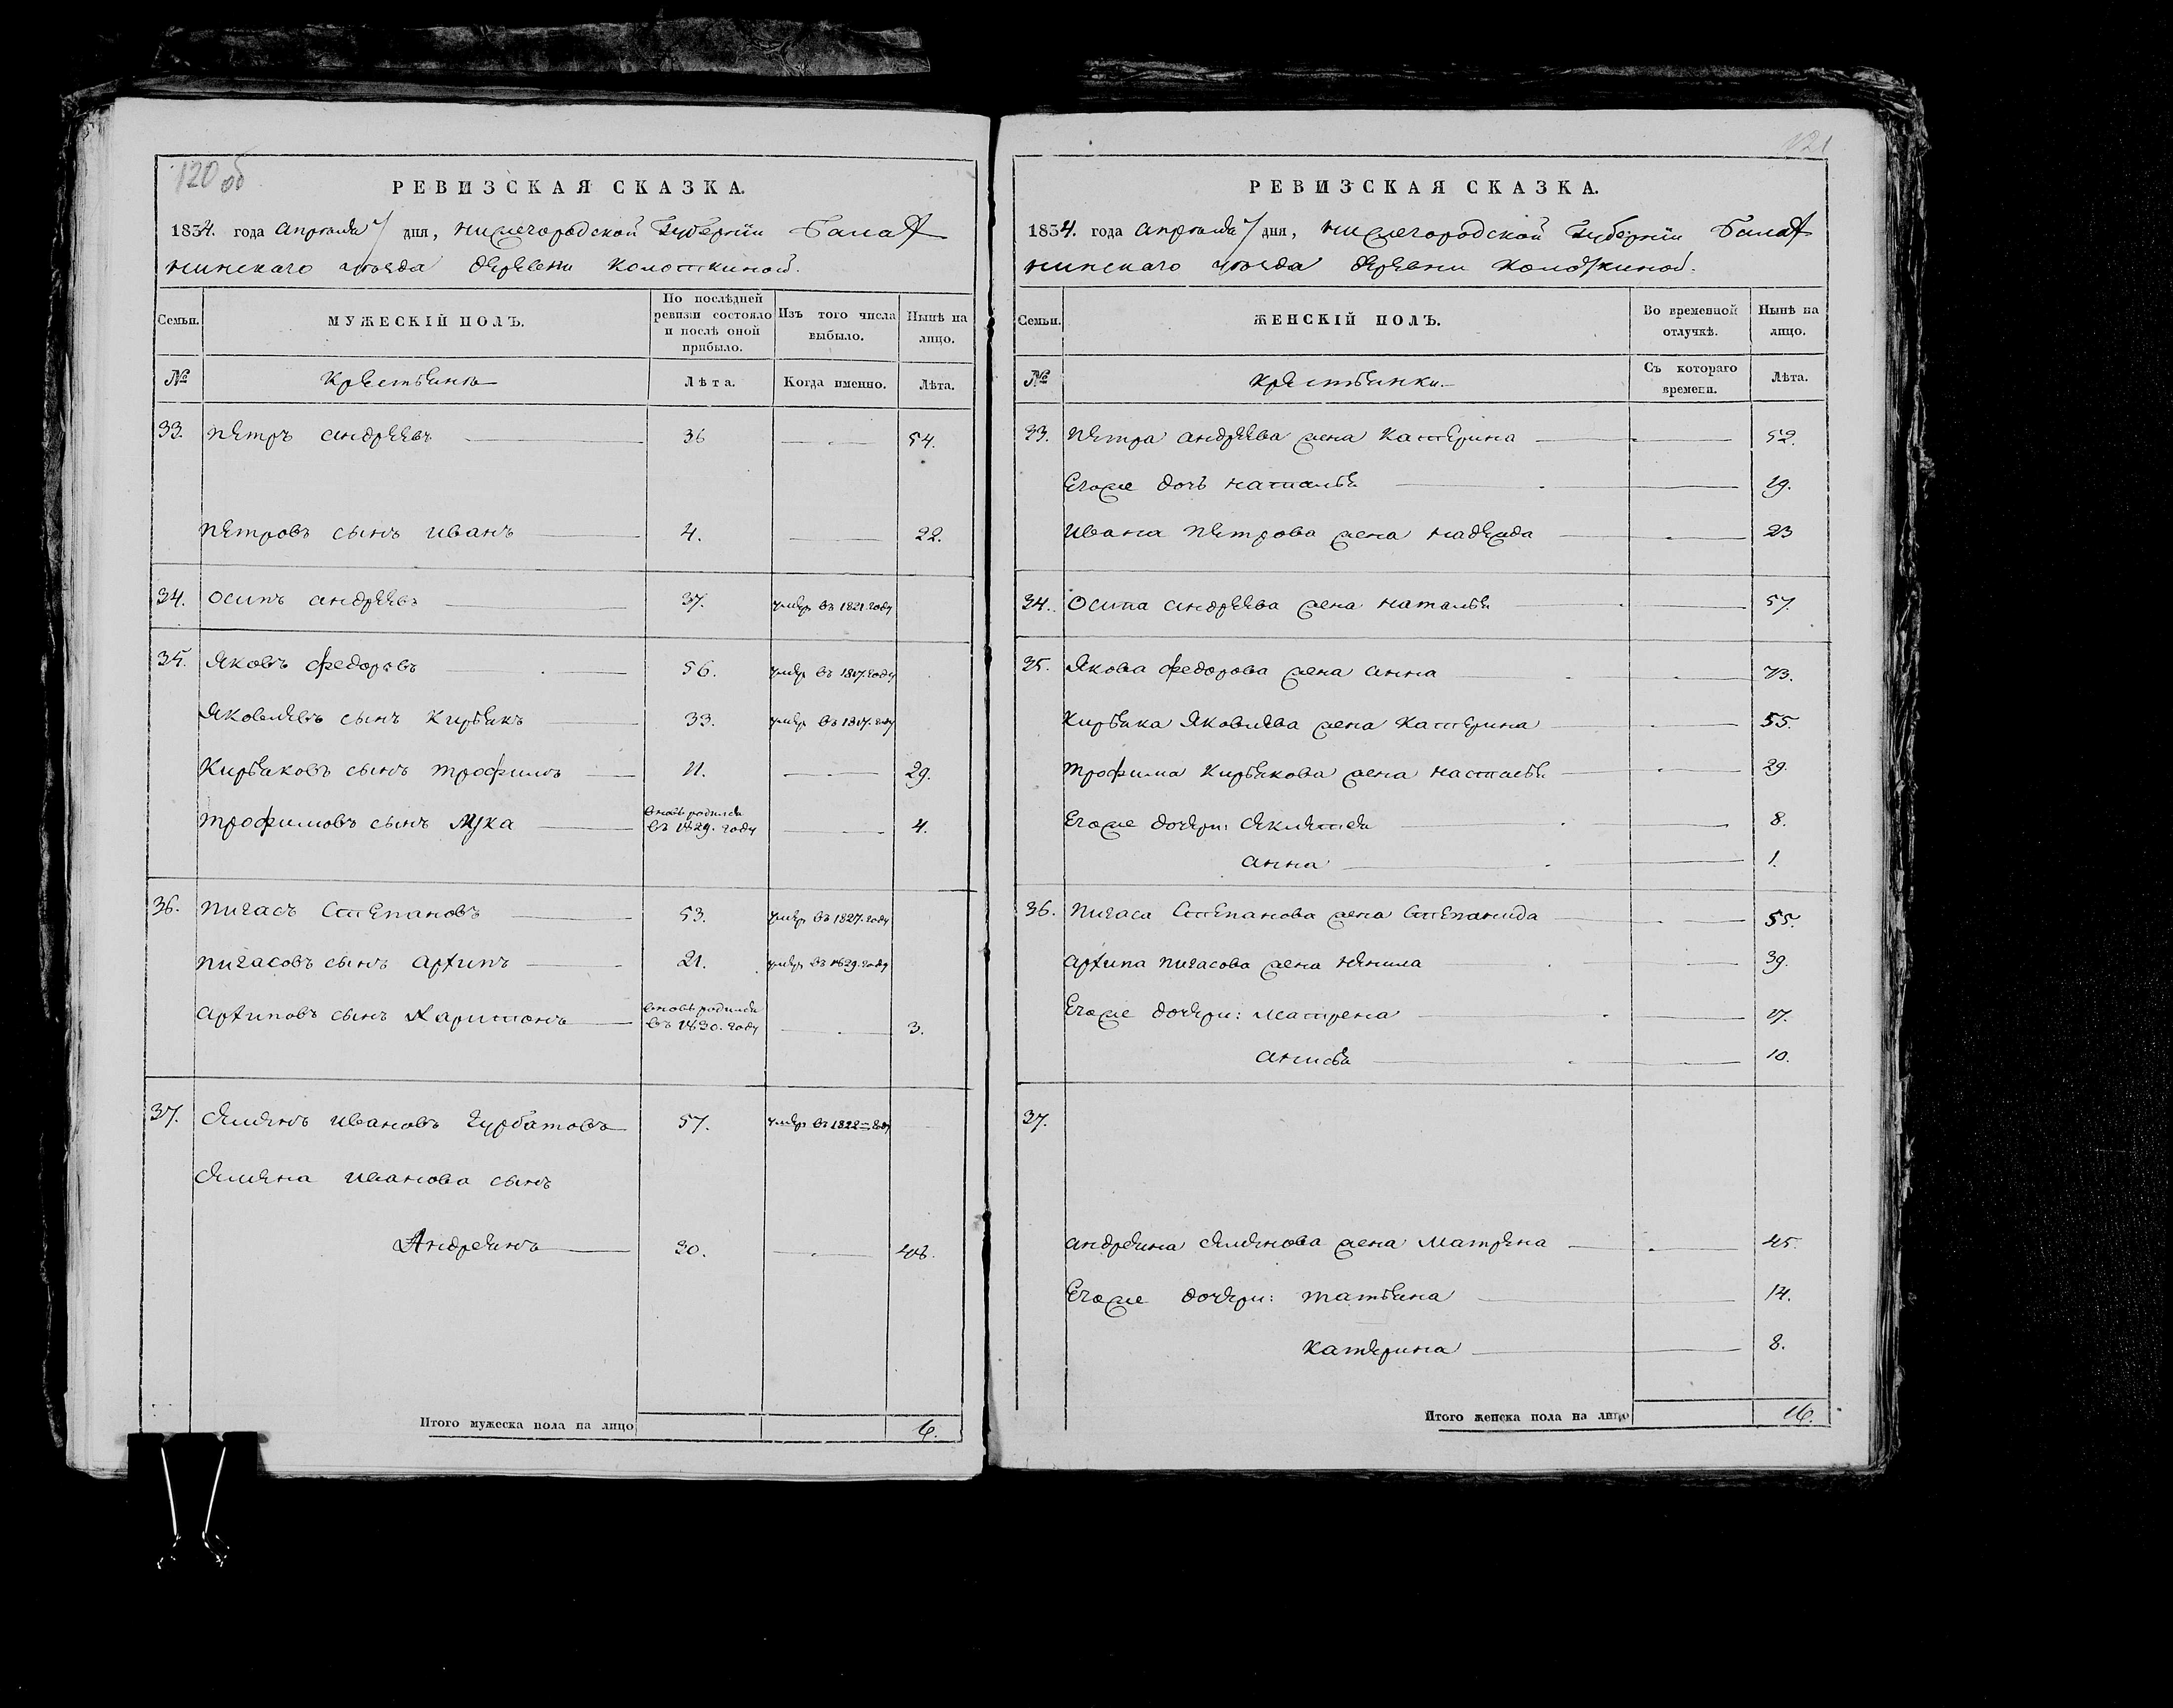 120 об
РЕВИЗСКАЯ СКАЗКА.
1834. года апреля 7 дня, нижегородской Губернїи Балах
нинскаго уѣзда деревни колоткиной.
Семьи.
МУЖЕСКІЙ ПОЛЪ.
По послѣдней ревизіи состояло и послѣ оной прибыло.
Изъ того числа выбыло.
Нынѣ на лицо.
№ Крестьянъ Лѣта. Когда именно. Лѣта.
33. петръ андреевъ 36 54.
петровъ сынъ иванъ 4. 22.
34. осипъ андреевъ 37. умеръ въ 1821. году
35. яковъ федоровъ 56. умеръ въ 1817. году
яковлевъ сынъ кирьякъ 33. умеръ въ 1817. году
Кирьяковъ сынъ трофимъ 11. 29.
трофимовъ сынъ лука вновь родился въ 1829. году 4.
36. пигасъ Степановъ 53. умеръ въ 1827. году
пигасовъ сынъ архипъ 21. умеръ въ 1829. году
архиповъ сынъ харитонъ вновь родился въ 1830. году 3.
37. емелянъ ивановъ гурбатовъ 57. умеръ въ 1822 = году
емеляна иванова сынъ
Андреянъ 30. 48.
Итого мужеска пола на лицо 6.
121
РЕВИЗСКАЯ СКАЗКА.
1834. года апреля 7 дня, нижегородской Губернїи Балах
нинскаго уѣзда деревни колоткиной.
Семьи.
ЖЕНСКІЙ ПОЛЪ.
Во временной отлучкѣ.
Нынѣ на лицо.
№ крестьянки. Съ котораго времени. Лѣта.
33. петра андреева жена катерина 52.
Егоже дочь наталья 19.
ивана петрова жена надежда 23
34. осипа андреева жена наталья 57.
35. якова федорова жена анна 73.
кирьяка яковлева жена катерина 55.
трофима кирьякова жена насталья 29.
Егоже дочери: 8.
анна 1.
36. пигаса Степанова жена Степанида 55.
архипа пигасова жена ненила 39.
Егоже дочери: матрена 17.
анисья 10.
37.
андреяна емелянова жена матрена 45.
Егоже дочери: татьяна 14.
катерина 8.
Итого женска пола на лицо 16.